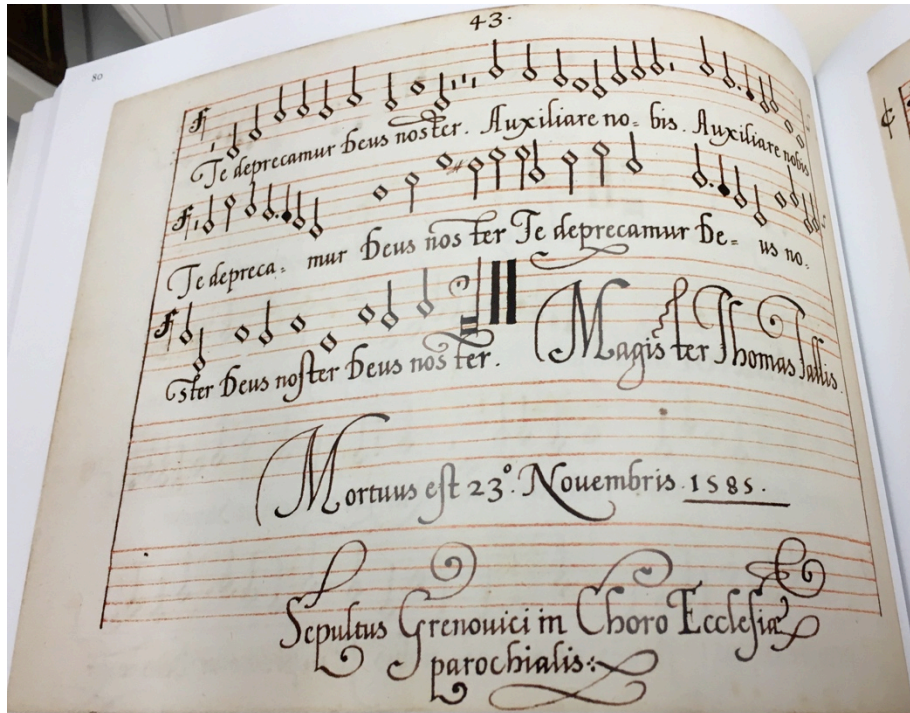 80
43.
Te deprecamur Deus noster. Auxiliare no- bis. Auxiliare nobis
Te depreca- mur Deus nos ter Te deprecamur De- us no-
ster Deus noſter Deus nos ter. Magis ter Thomas Tallis.
Mortuus eſt 23º. Nouembris. 1585.
Sepultus Grenouici in Choro Eccleſiæ
parochialis: